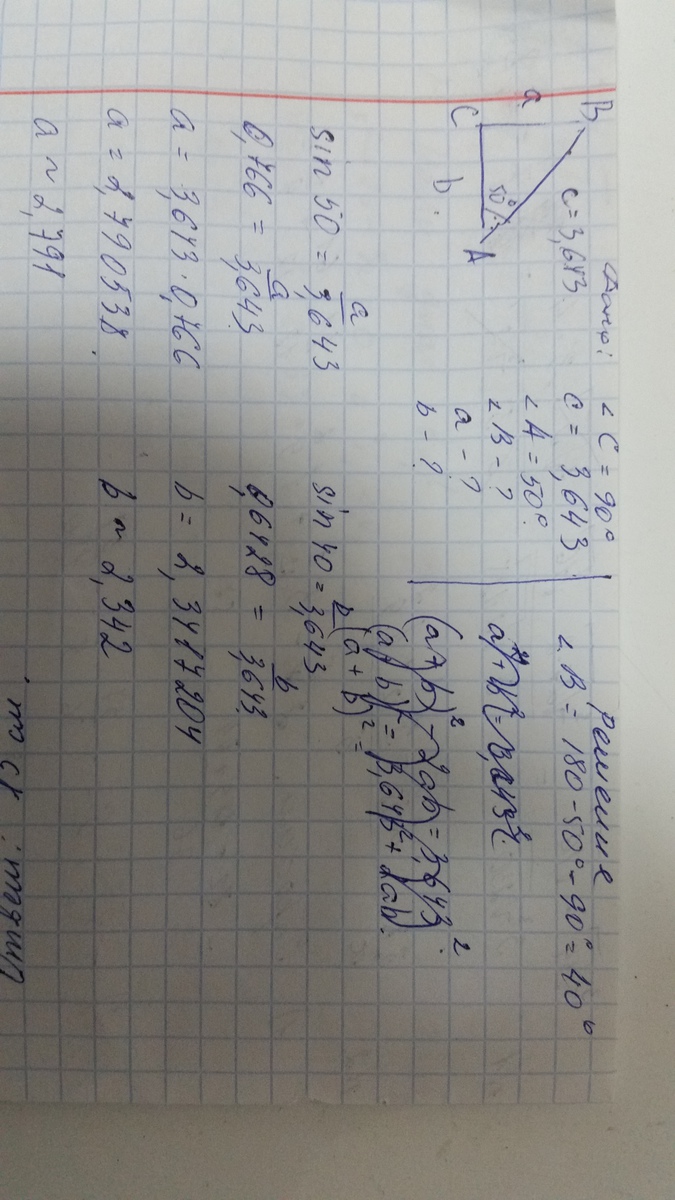 Дано:
∠C = 90°
c = 3,643
∠A = 50°
∠B - ?
a - ?
b - ?
B
a
c = 3,643
C
50°
b
A
Решение
∠B = 180-50°-90° = 40°
a² + b² = 3,643².
(a+b)² - 2ab = 3,643²
(a+b)² = 3,643² + 2ab.
(a+b)² =
sin 50 = a/3,643
0,766 = a/3,643
a = 3,643·0,766
a = 2,790538
a ~ 2,791
sin 40 = b/3,643
0,6428 = b/3,643
b = 2,3417204
b ~ 2,342
Ответ:
см.